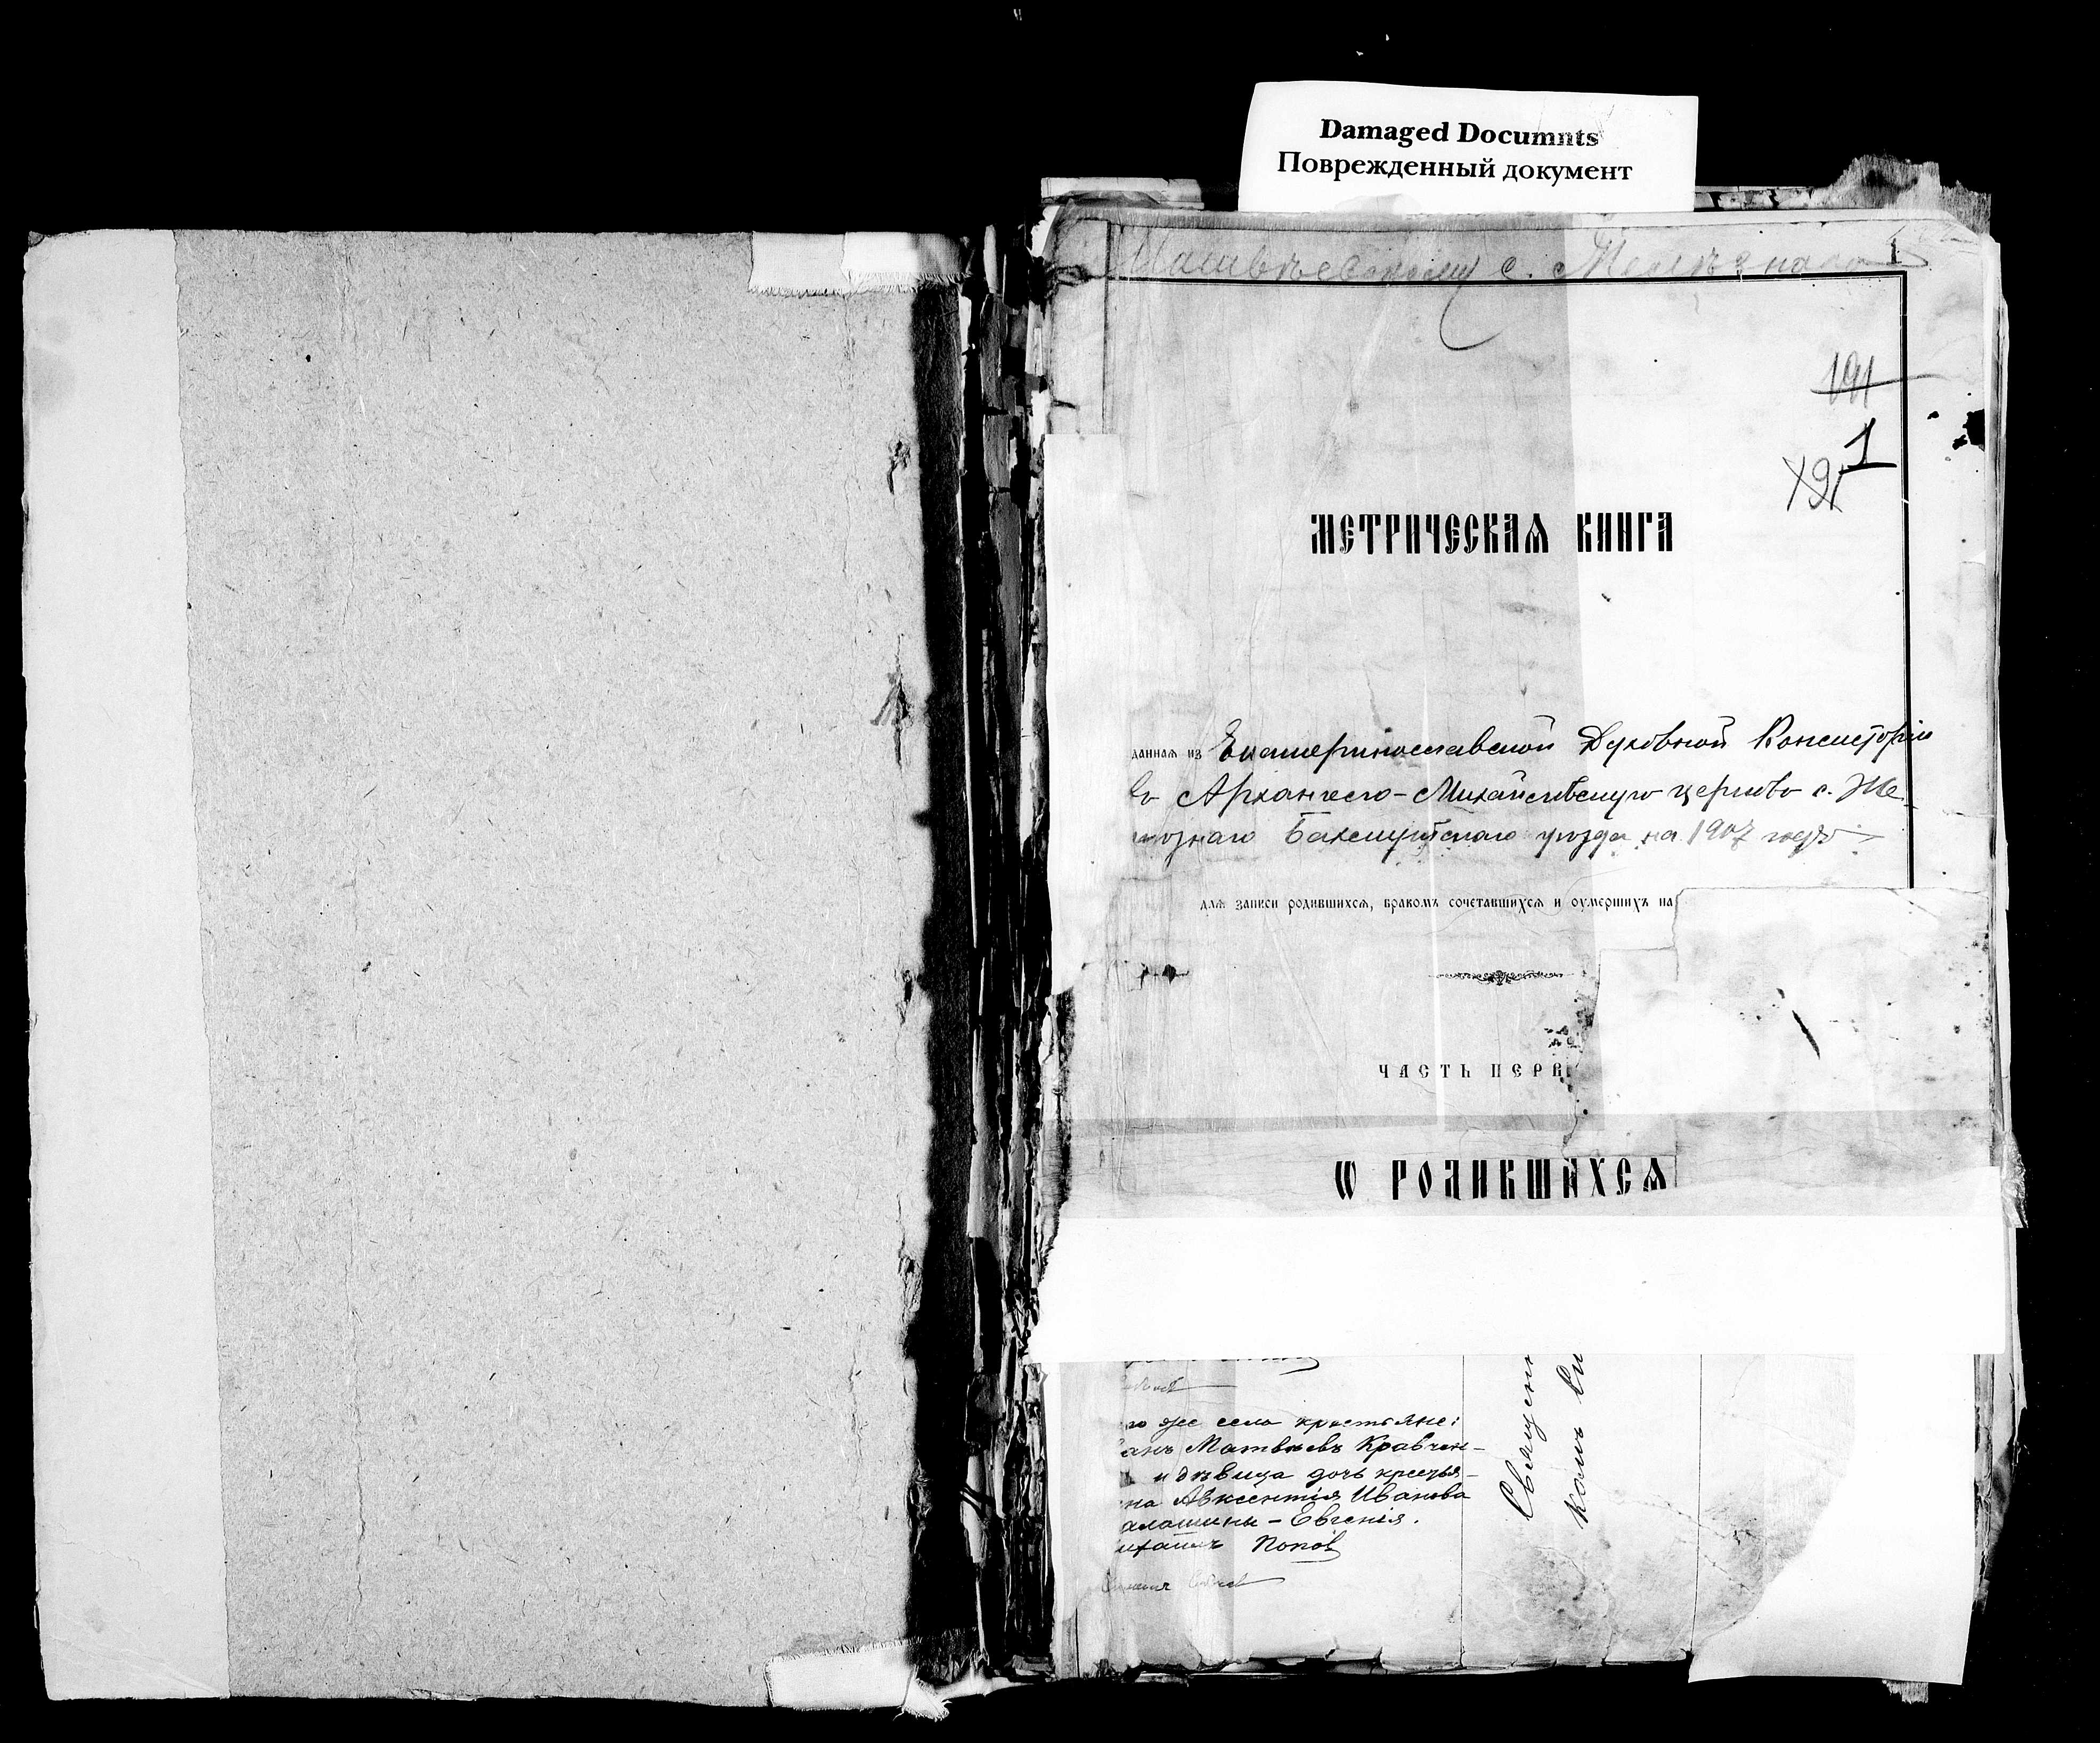 Damaged Documnts
Поврежденный документ
с.
1
191
1
191
МЕТРИЧЕСКАѦ КНИГА
данная из Екатеринославской Духовной Консисторіи
въ Архангело-Михайловскую церковь с. Же
лѣзнаго Бахмутскаго уѣзда на 1907 годъ
для записи родившихся, бракомъ сочетавшихся и оумершихъ на
ЧАСТЬ ПЕРВ
Ѡ РОДИВШИХСѦ
го же села крестьяне:
анъ Матвѣевъ Кравчен-
и дѣвица дочь крестья-
на Авксентія Иванова
алашины - Евгенія.
ихаилъ Попов
Священн
комъ